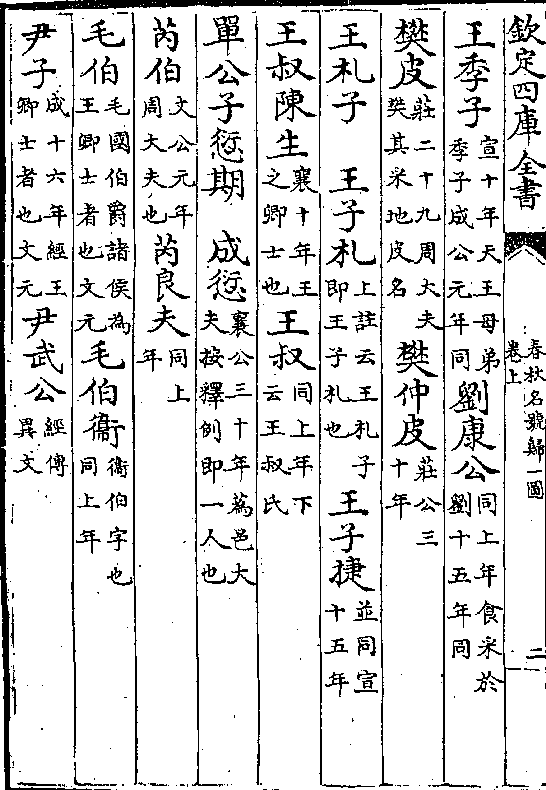 欽定四庫全書
春秋名號歸一圖
卷上
二
王季子宣十年天王母弟季子成公元年同劉康公同上年食采於劉十五年同
樊皮莊二十九周大夫樊其采地皮名樊仲皮莊公三十年
王札子 王子札上註云王札子即王子札也王子捷並同宣十五年
王叔陳生襄十年王之卿士也王叔同上年下云王叔氏
單公子愆期 成愆襄公三十年為邑大夫按釋例即一人也
芮伯文公元年周大夫也芮良夫同上年
毛伯毛國伯爵諸侯為王卿士者也文元毛伯衞衞伯字也同上年
尹子成十六年經王卿士者也文元尹武公經傳異文